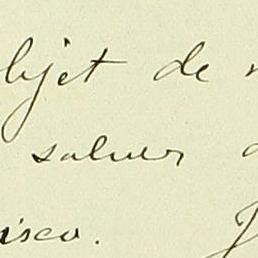 objet de
saluer
isco.